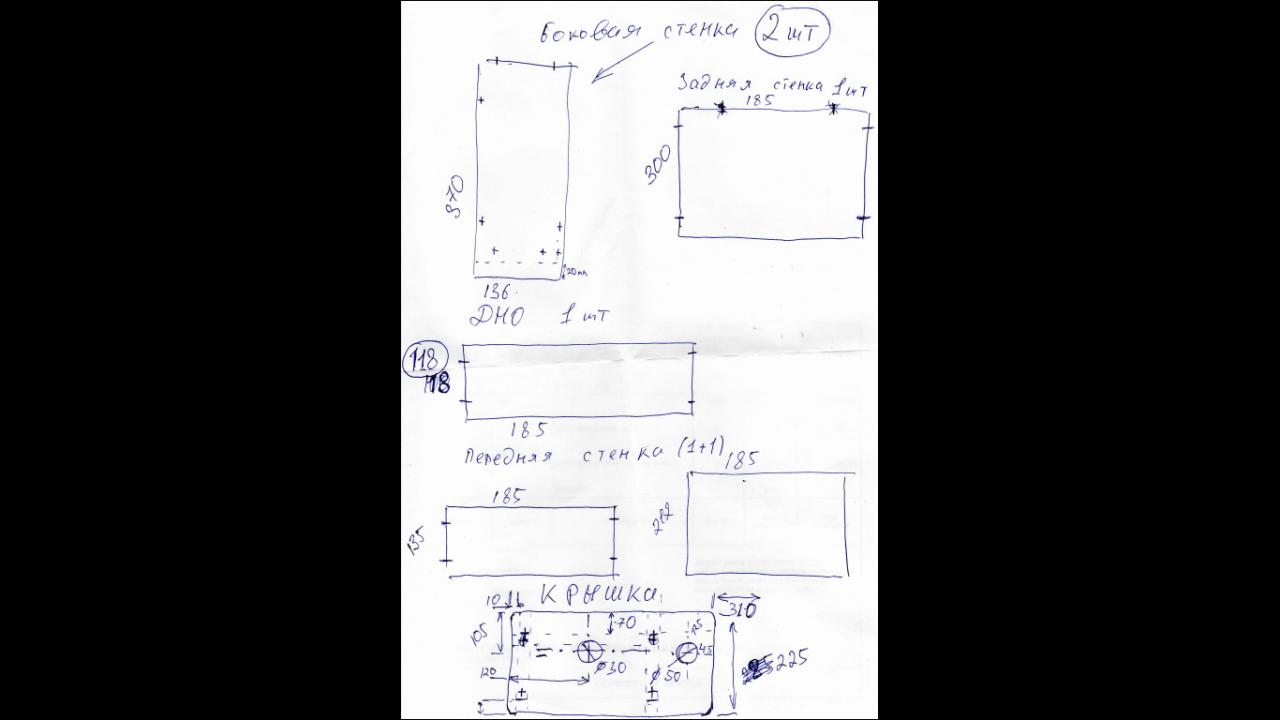 Боковая стенка 2 шт
Задняя стенка 1 шт
185
300
370
20мм
136
ДНО 1 шт
118
118
185
Передняя стенка (1+1)
185
185
135
212
КРЫШКА
10
310
70
105
15
45
120
⌀30
⌀50
225